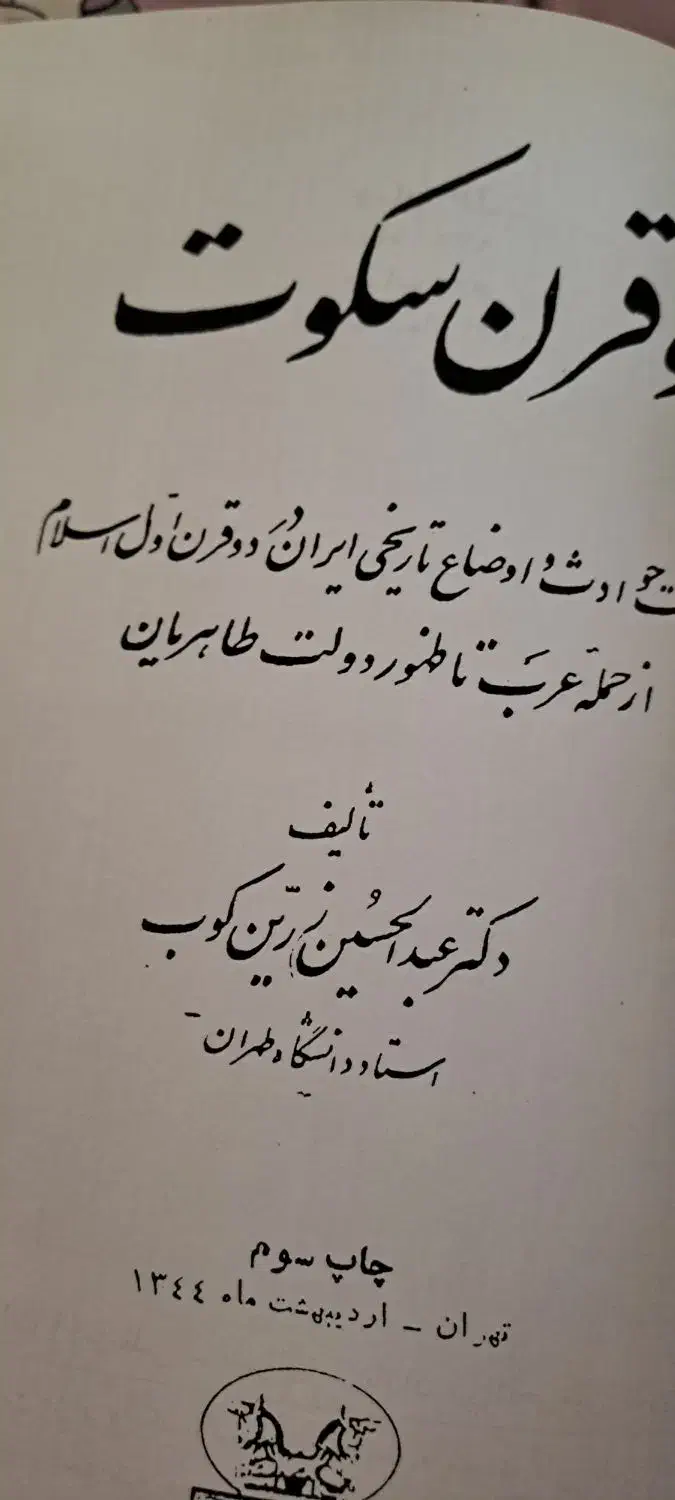 قرن سکوت
حوادث و اوضاع تاریخی ایران در دو قرن اول اسلام
از حمله عرب تا ظهور دولت طاهریان
تألیف
دکتر عبدالحسین زرین کوب
استاد دانشگاه طهران
چاپ سوم
تهران - اردیبهشت ماه ۱۳٤٤